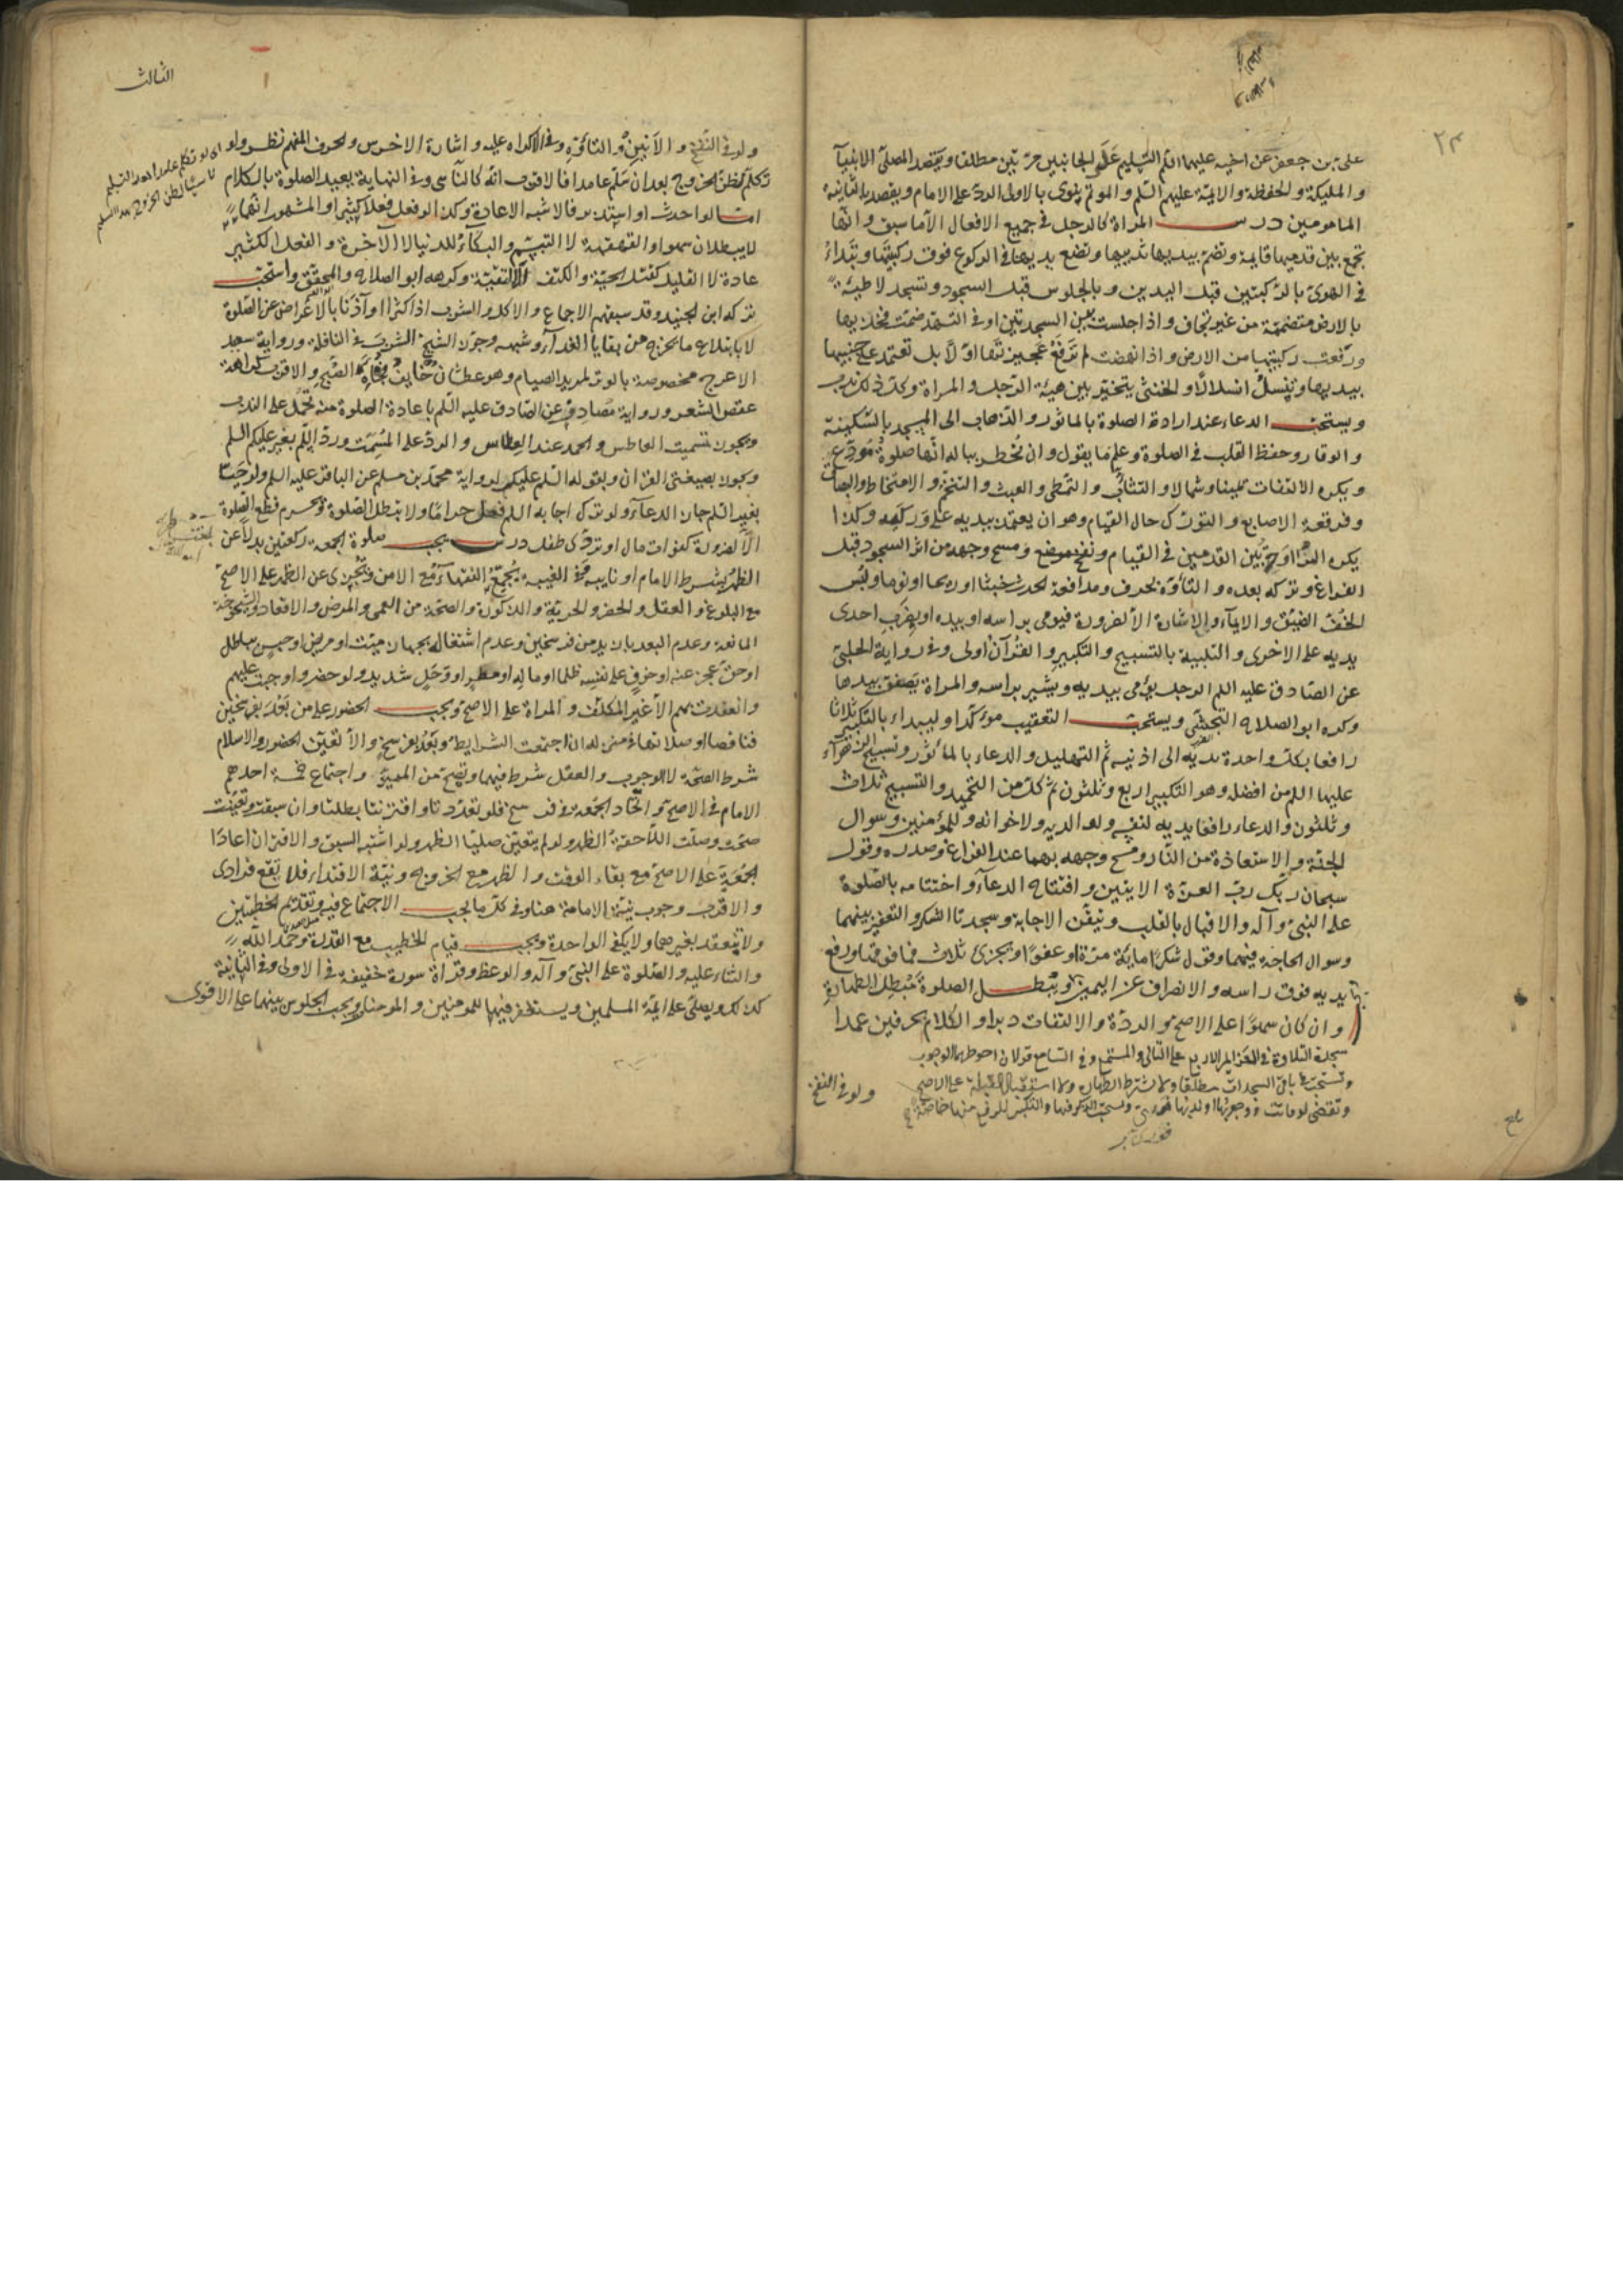 ٢٣
علي بن جعفر عن اخيه عليهما السلم التسليم على الجانبين مرتين مطلقا ويقصد المصلي الانبياء
والمليكة والحفظة والائمة عليهم السلم والموتم ينوي بالاولى الرد على الامام ويقصد بالثانية
المامومين درس المراة كالرجل في جميع الافعال الا ما سبق وانها
تجمع بين قدميها قايمة وتضم بيديها ثدييها وتضع يديها في الركوع فوق ركبتيها وتبداء
في الهوى بالركبتين قبل اليدين وبالجلوس قبل السجود وتسجد لاطية
بالارض متضممة من غير تجاف واذا جلست بين السجدتين او في التشهد ضمت فخذيها
ورفعت ركبتيها من الارض واذا نهضت لم ترفع عجيزتها اولا بل تعتمد على جنبيها
بيديها وتنسل انسلالا والخنثى يتخير بين هيئة الرجل والمراة وكل ذلك ندب
ويستحب الدعاء عند ارادة الصلوة بالماثور والذهاب الى المسجد بالسكينة
والوقار وحفظ القلب في الصلوة وعلم ما يقول وان يخطر بباله انها صلوة مودع
ويكره الالتفات يمينا وشمالا والتثائب والتمطي والعبث والتنخم والامتخاط والبصاق
وفرقعة الاصابع والتورك حال القيام وهو ان يعتمد بيديه على وركيه وكذا
يكره المراوحة بين القدمين في القيام ونفخ موضع ومسح وجهه من اثر السجود قبل
الفراغ وتركه بعده والتاوه بحرف ومدافعة الحدث خبثا او ريحا او نوما ولبس
الخف الضيق والايماء والاشارة الا لضرورة فيومي براسه او بيده او بضرب احدى
يديه على الاخرى والتلبية بالتسبيح والتكبير والقرآن اولى وفي رواية الحلبي
عن الصادق عليه السلم الرجل يومى بيديه ويشير براسه والمراة تصفق بيدها
وكره ابو الصلاح التجشي ويستحب التعقيب موكدا وليبداء بالتكبير ثلاثا
رافعا بكل واحدة يديه الى اذنيه ثم التهليل والدعاء بالماثور وتسبيح الزهراء
عليها السلم من افضله وهو التكبير اربع وثلثون ثم كل من التحميد والتسبيح ثلاث
وثلثون والدعاء رافعا يديه لنفسه ولوالديه ولاخوانه وللمومنين وسوال
الجنة والاستعاذة من النار ومسح وجهه بهما عند الفراغ وصدره وقول
سبحان ربك رب العزة الايتين وافتتاح الدعاء واختتامه بالصلوة
على النبي وآله والاقبال بالقلب وتيقن الاجابة وسجدتا الشكر والتعفير بينهما
وسوال الحاجة فيهما وقول شكرا مائة مرة او عفوا ويجزي ثلاث فما فوقها ورفع
يديه فوق راسه والانصراف عن اليمين ويبطل الصلوة مبطل الطهارة
وان كان سهوا على الاصح والردة والالتفات دبرا والكلام بحرفين عمدا
سجدة التلاوة في العزايم الاربع على التالي والمستمع وفي السامع قولان احوطهما الوجوب
وتستحب في باقي السجدات مطلقا ولا يشترط الطهارة ولا استقبال القبلة على الاصح
ولو في النفخ
الثالث
ولو في النفخ والانين والتاوه وفي الاكراه عليه واشارة الاخرس والحرف المفهم نظر ولو
تكلم لظن الخروج بعد ان سلم عامدا فالاقرب انه كالناسي وفي النهاية يعيد الصلوة بالكلام
اما لو احدث او استدبر فالاشبه الاعادة وكذا لو فعل فعلا كثيرا والمشهور انهما
لا يبطلان سهوا والقهقهة لا التبسم والبكاء للدنيا لا الاخرة والفعل الكثير
عادة لا القليل كقتل الحية والكتف الا لتقية وكرهه ابو الصلاح والمحقق واستحب
تركه ابن الجنيد وقد سبقهم الاجماع والاكل والشرب اذا كثرا او آذنا بالاعراض عن الصلوة
لا بابتلاع ما يخرج من بقايا الغذاء وشبهه وجوز الشيخ الشرب في النافلة ورواية سعيد
الاعرج مخصوصة بالوتر لمريد الصيام وهو عطشان خايف فجاءة الصبح والاقرب كراهة
عقص الشعر ورواية مصادف عن الصادق عليه السلم باعادة الصلوة منه تحمل على الندب
ويجوز تسميت العاطس والحمد عند العطاس والرد على المسمت ورد السلم بغير عليكم السلم
ويجوز بصيغتي القرآن وبقوله السلم عليكم لرواية محمد بن مسلم عن الباقر عليه السلم ولو حيي
بغير السلم جاز الدعاء ولو ترك اجابة السلم فعل حراما ولا يبطل الصلوة ويحرم قطع الصلوة
الا لضرورة كفوات مال او تردى طفل درس يجب صلوة الجمعة ركعتين بدلا عن
الظهر بشرط الامام او نايبه وفي الغيبة يجمع الفقهاء مع الامن وتجزي عن الظهر على الاصح
مع البلوغ والعقل والحضر والحرية والذكورة والصحة من العمى والمرض والاقعاد والشيخوخة
المانعة وعدم البعد بازيد من فرسخين وعدم اشتغاله بجهاز ميت او مريض او حبس بباطل
او حق عجز عنه او خوف على نفسه ظلما او ماله او مطر او وحل شديد ولو حضروا وجبت عليهم
وانعقدت بهم الا غير المكلف والمراة على الاصح ويجب الحضور على من بعد بفرسخين
فناقصا او صلاتها في منزله ان اجتمعت الشرايط وبعد بفرسخ والا تعين الحضور والاسلام
شرط الصحة لا الوجوب والعقل شرط فيهما وتصح من المميز واجتماع خمسة احدهم
الامام في الاصح واتحاد الجمعة في فرسخ فلو تعددتا واقترنتا بطلتا وان سبقت وتعينت
صحت وصلت اللاحقة الظهر ولو لم يتعين صليتا الظهر ولو اشتبه السبق والاقتران اعادتا
الجمعة على الاصح مع بقاء الوقت والظهر مع الخروج ونية الاقتداء فلا تقع فرادى
والاقرب وجوب نية الامامة هنا وفي كل ما يجب الاجتماع فيه وتقديم الخطبتين
ولا تنعقد بغيرهما ولا يكفي الواحدة ويجب قيام الخطيب مع القدرة وحمد الله
والثناء عليه والصلوة على النبي وآله والوعظ وقراة سورة خفيفة في الاولى وفي الثانية
كذلك ويصلي على ائمة المسلمين ويستغفر فيها للمومنين والمومنات ويجب الجلوس بينهما على الاقوى